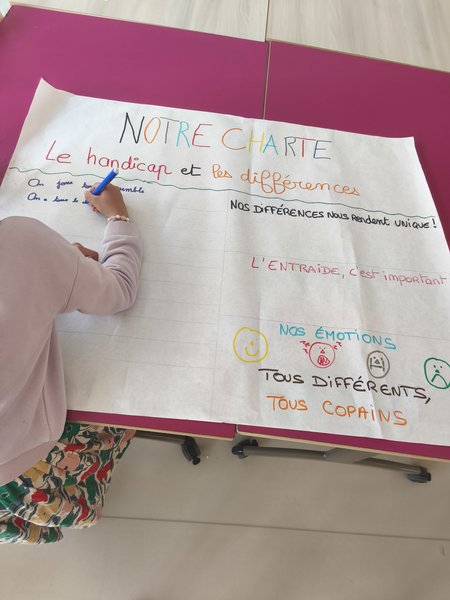 NOTRE CHARTE
Le handicap et les différences
On joue ensemble
On a tous le
NOS DIFFÉRENCES NOUS RENDENT UNIQUE!
L'ENTRAIDE, C'est important
NOS ÉMOTIONS
TOUS DIFFÉRENTS,
TOUS COPAINS